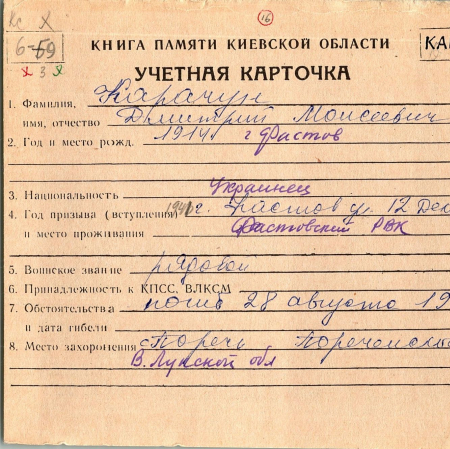 Кс X
16
6-59
х 3 х
КНИГА ПАМЯТИ КИЕВСКОЙ ОБЛАСТИ
КА
УЧЕТНАЯ КАРТОЧКА
1. Фамилия, Карачун
имя, отчество Дмитрий Моисеевич
2. Год и место рожд. 1914г г Фастов
3. Национальность Украинец
4. Год призыва (вступления) 1941 г. Фастов ул 12 Дек
и место проживания Фастовский РВК
5. Воинское звание рядовой
6. Принадлежность к КПСС, ВЛКСМ
7. Обстоятельства погиб 28 августа 19
и дата гибели
8. Место захоронения с Поречь,
В. Лукской обл